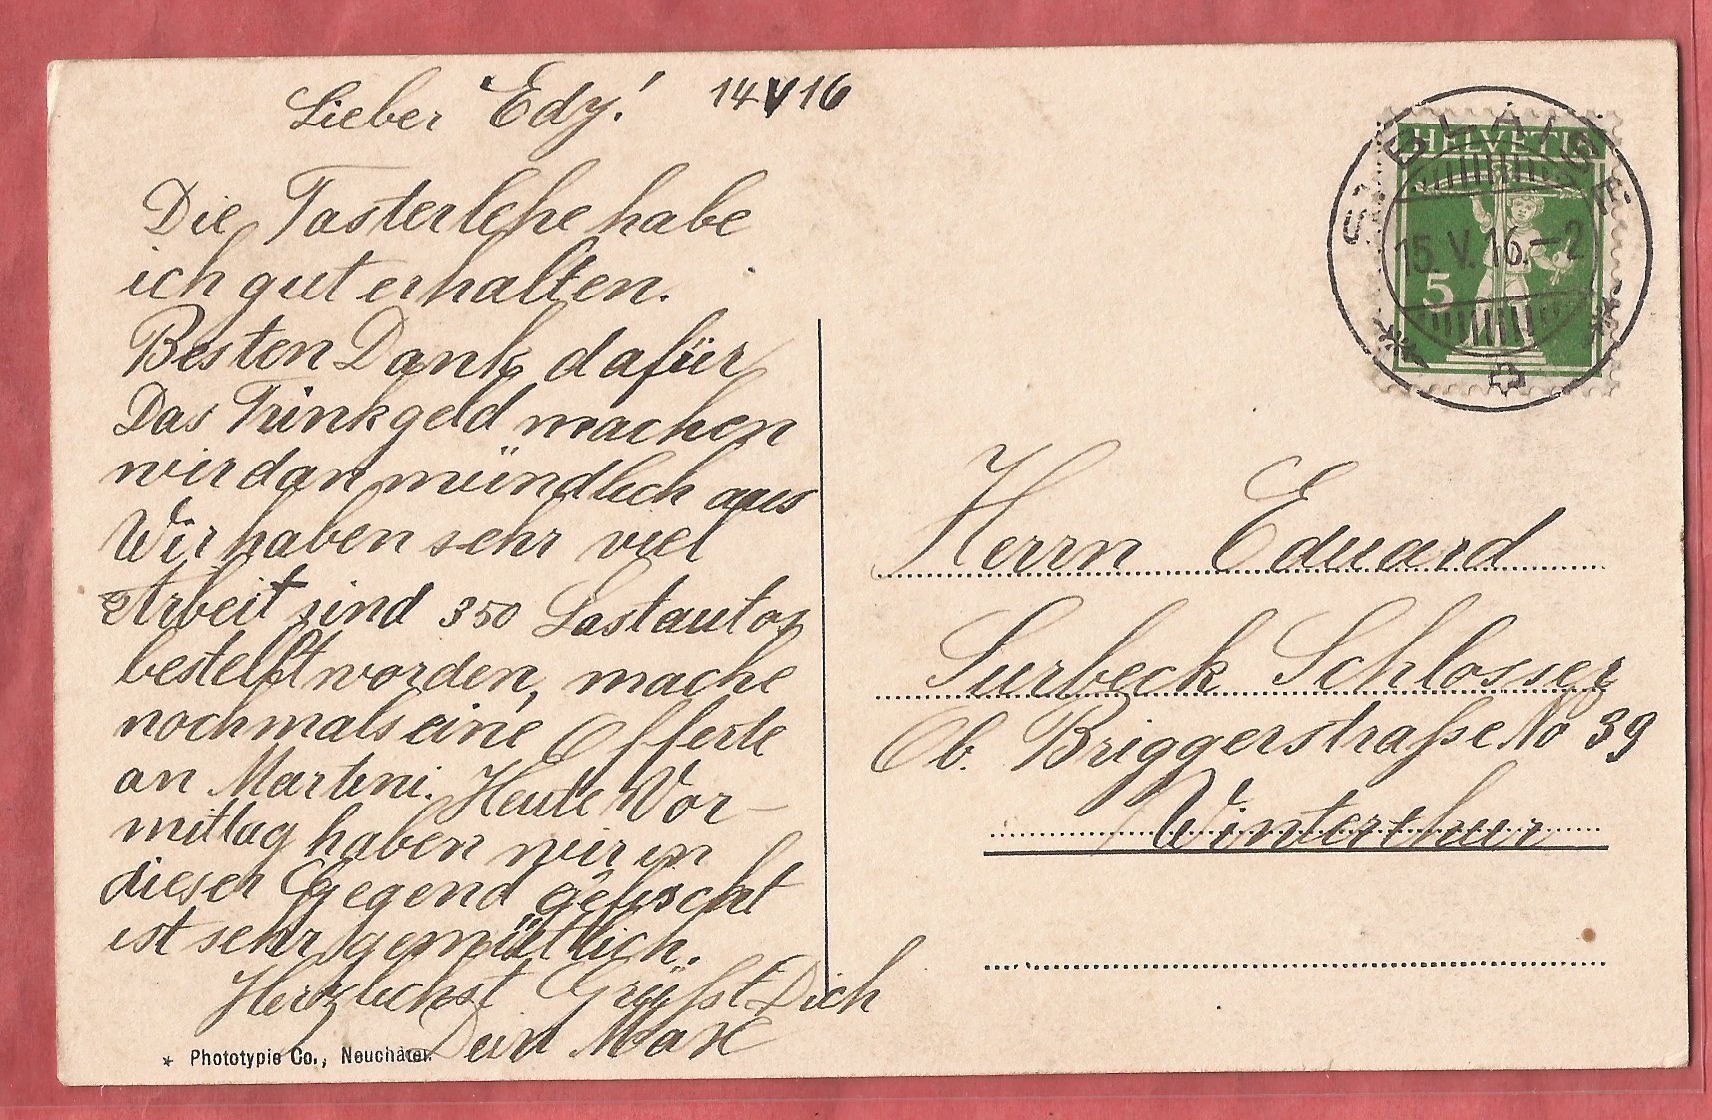 Lieber Edy! 14 V 16
Die Tasterlehe habe
ich gut erhalten.
Besten Dank dafür
Das Trinkgeld machen
wir dan mündlich aus
Wir haben sehr viel
Arbeit sind 350 Lastautos
bestellt worden, mache
nochmals eine Offerte
an Martini. Heute Vor-
mittag haben wir in
dieser Gegend gefischt
ist sehr gemütlich.
Herzlichst Grüßt Dich
Dein Max
* Phototypie Co., Neuchâtel.
HELVETIA
5
ST BLAISE
15.V.16.-2
Herrn Eduard
Surbeck Schlosser
Ob. Briggerstraße No 39
Winterthur